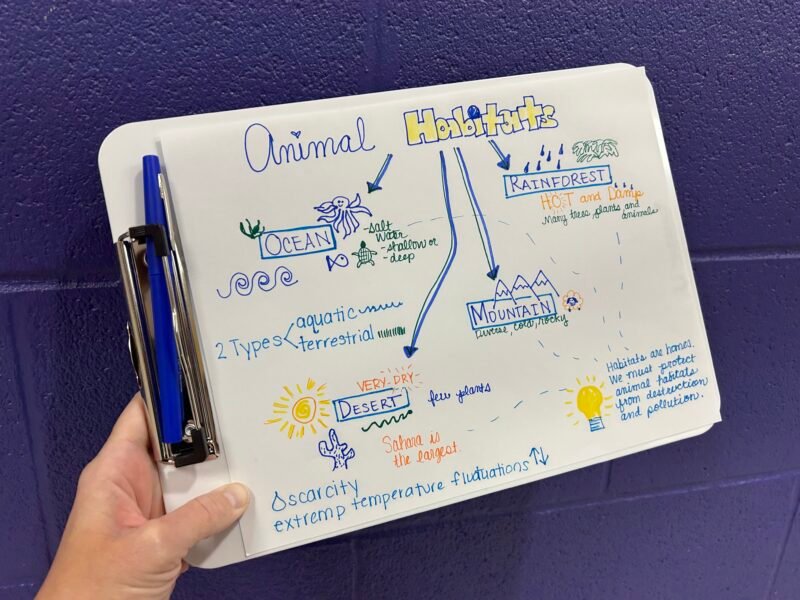 Animal Habitats
RAINFOREST
HOT and Damp
Many trees, plants and
animals
OCEAN
-salt
water
-shallow or
-deep
MOUNTAIN
Diverse, cold, rocky
2 Types
aquatic
terrestrial
VERY-DRY
DESERT
few plants
Sahara is
the largest.
scarcity
extremp temperature fluctuations
Habitats are homes.
We must protect
animal habitats
from destruction
and pollution.